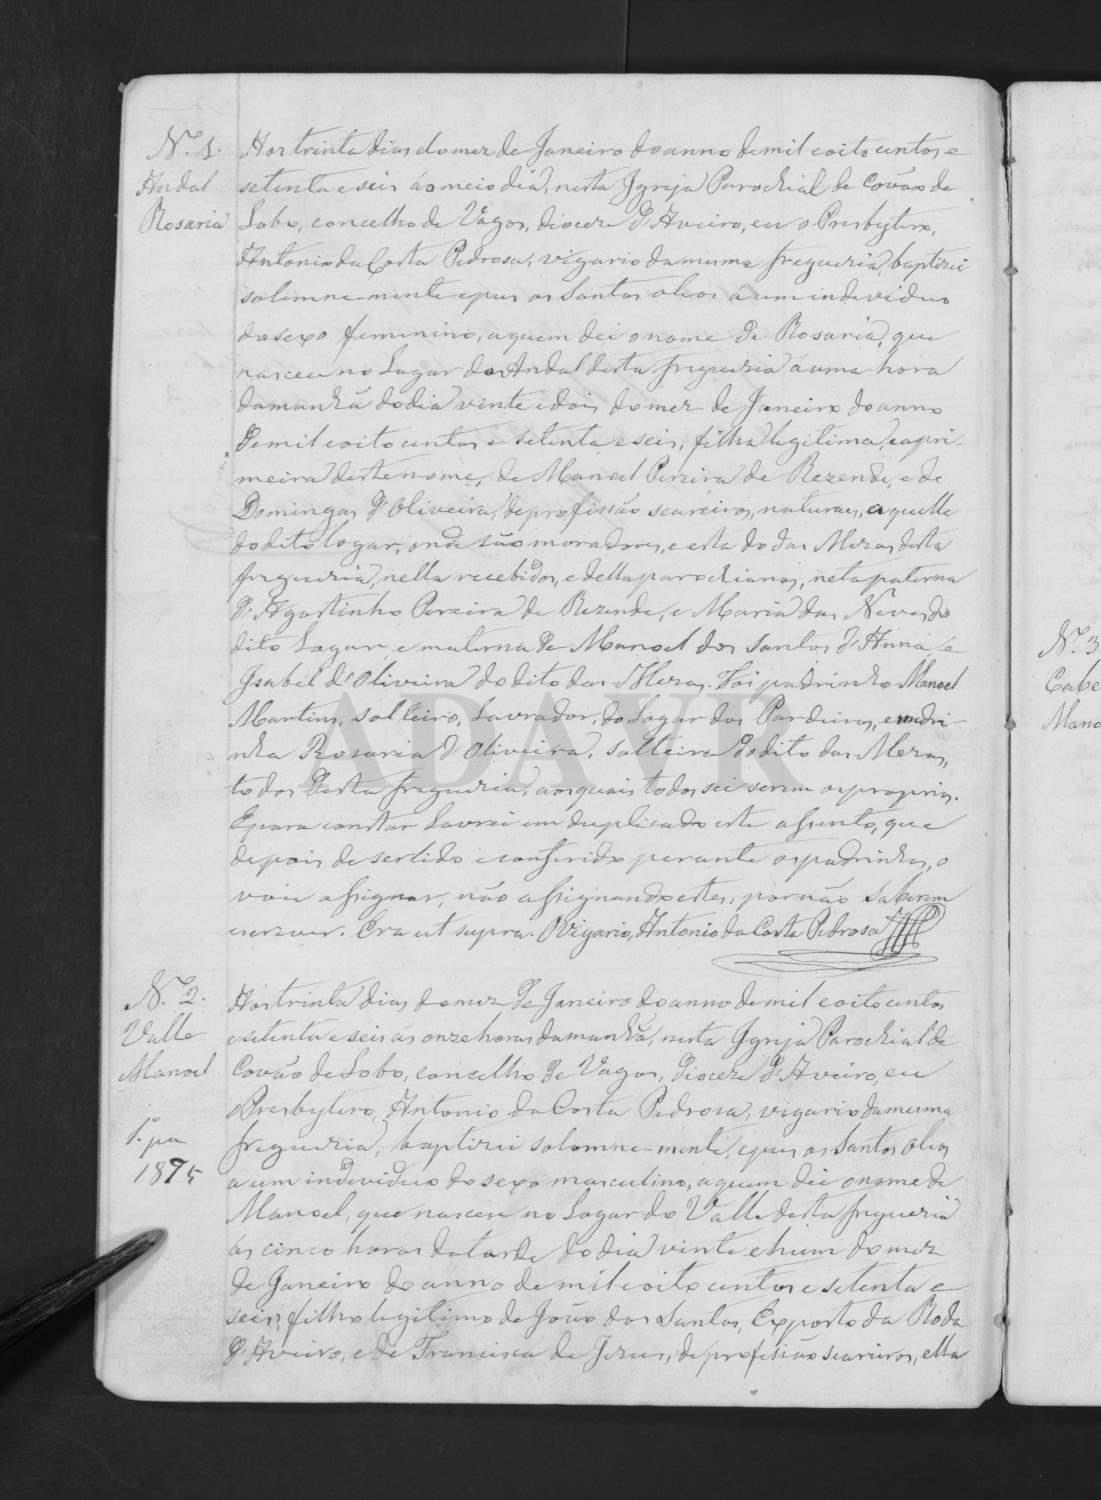 N.º 1.
Andal
Rosaria
Aos trinta dias do mez de Janeiro do anno de mil e oito centos e
setenta e seis ao meio dia, nesta Igreja Parochial de Covão de
Lobo, concelho de Vagos, diocese d'Aveiro, eu o Presbytero,
Antonio da Costa Pedrosa, vigario da mesma freguezia, baptizei
solemne-mente e puz os Santos oleos a um individuo
do sexo femenino, a quem dei o nome de Rosaria, que
nasceu no Lugar do Andal desta freguezia á uma hora
da manhã do dia vinte e dois do mez de Janeiro do anno
de mil e oito centos e setenta e seis, filha legitima, e a pri-
meira deste nome, de Manoel Pereira de Rezende, e de
Domingas d'Oliveira, de profissão seareiros, naturaes, aquelle
do dito logar, onde são moradores, e esta do das Mezas desta
freguezia, nella recebidos, e della parochianos, neta paterna
d'Agostinho Pereira de Rezende, e Maria das Neves do
dito Lugar, e materna de Manoel dos Santos d'Anna, e
Isabel d'Oliveira do dito das Mezas. Foi padrinho Manoel
Martins, solteiro, Lavrador, do Lugar dos Pardeiros, e madri-
nha Rosaria d'Oliveira, solteira do dito das Mezas,
todos desta freguezia, aos quais todos sei serem os proprios.
E para constar Lavrei em duplicado este assento, que
depois de ser lido e conferido perante os padrinhos, o
vou assignar, não assignando estes, por não saberem
escrever. Era ut supra. O Vigario, Antonio da Costa Pedrosa
N.º 2.
Valle
Manoel
1.º pa
1895
Aos trinta dias do mez de Janeiro do anno de mil e oito centos
e setenta e seis ás onze horas da manhã, nesta Igreja Parochial de
Covão de Lobo, concelho de Vagos, diocese d'Aveiro, eu
o Presbytero, Antonio da Costa Pedrosa, vigario da mesma
freguezia, baptizei solemne-mente, e puz os Santos oleos
a um individuo do sexo masculino, a quem dei o nome de
Manoel, que nasceu no Lugar do Valle desta freguezia
ás cinco horas da tarde do dia vinte e hum do mez
de Janeiro do anno de mil e oito centos e setenta e
seis, filho legitimo de João dos Santos, Exposto da Roda
d'Aveiro, e de Francisca de Jesus, de profissão seareiros, ella
N.º 3
Cabe
Mano
ADAVR